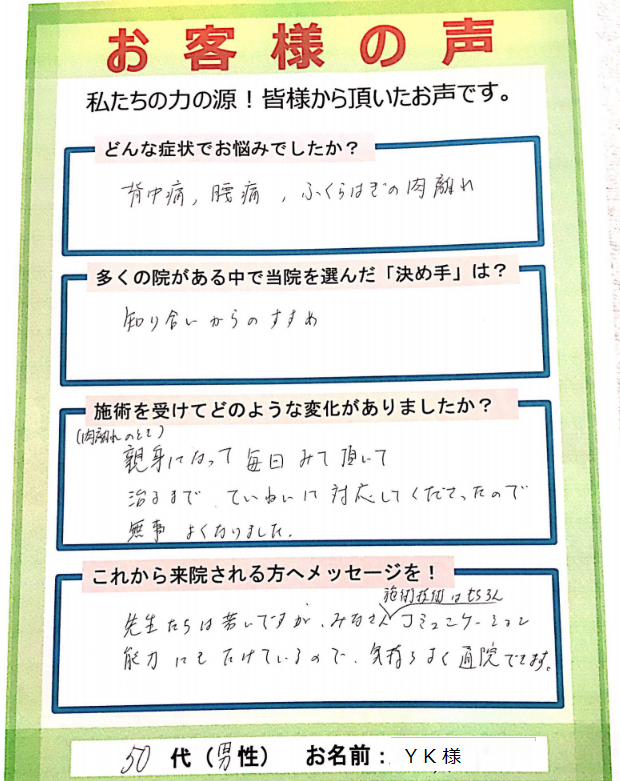 お客様の声
私たちの力の源！皆様から頂いたお声です。
どんな症状でお悩みでしたか？
背中痛，腰痛，ふくらはぎの肉離れ
多くの院がある中で当院を選んだ「決め手」は？
知り合いからのすすめ
施術を受けてどのような変化がありましたか？
(肉離れのとき)
親身になって毎日みて頂いて
治るまで、ていねいに対応してくださったので
無事よくなりました.
これから来院される方へメッセージを！
施術技術はもちろん
先生たちは若いですが、みなさんコミュニケーション
能力にもたけているので、気持ちよく通院できます。
50代（男性） お名前：ＹＫ様